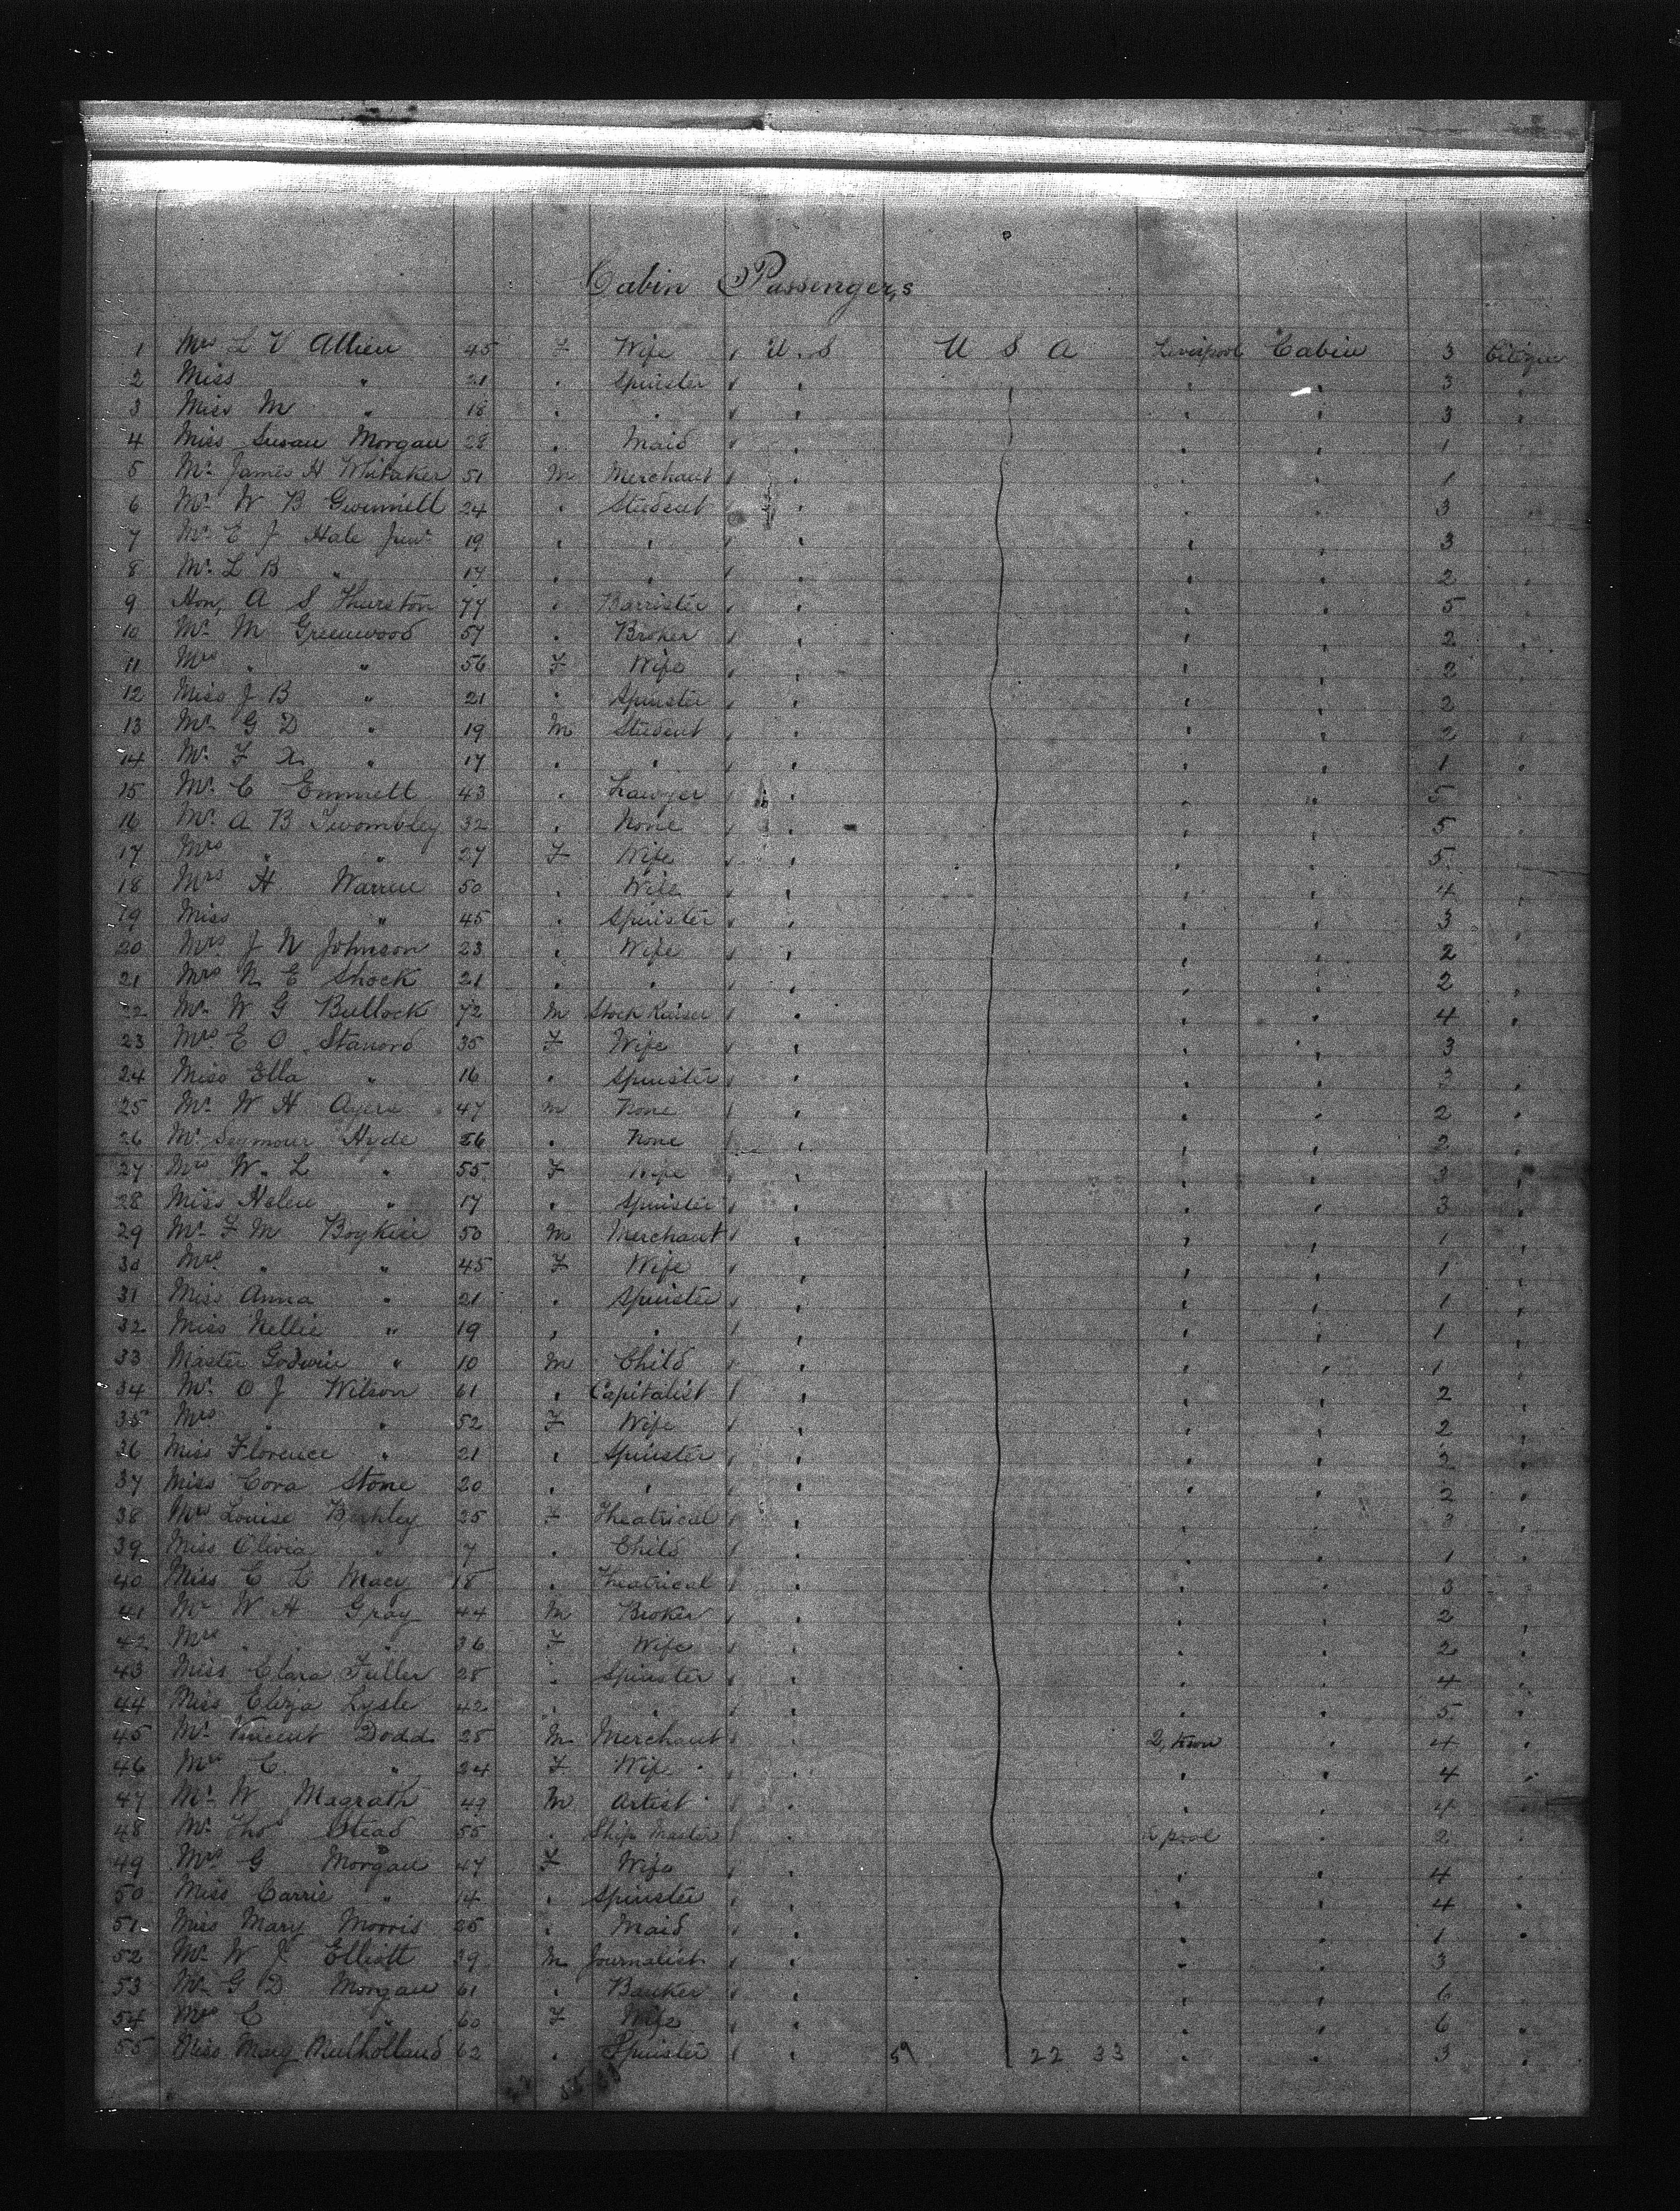 Cabin Passengers
1 Mrs L V 45 F Wife U.S U S A Liverpool Cabin 3 Citizen
2 Miss " 21 " Spinster " " " 3 "
3 Miss M " 18 " " " " " 3 "
4 Miss Susan Morgan 28 " Maid " " " 1 "
5 Mr James H Whitaker 51 M Merchant " " " 1 "
6 Mr W B 24 " Student " " " 3 "
7 Mr E J Hale Junr 19 " " " " " 3 "
8 Mr L B " 17 " " " " " 2 "
9 Hon, A S Thurston 77 " Barrister " " " 5 "
10 Mr M Greenwood 57 " Broker " " " 2 "
11 Mrs " " 56 F Wife " " " 2 "
12 Miss J B " 21 " Spinster " " " 2 "
13 Mr G D " 19 M Student " " " 2 "
14 Mr F " 17 " " " " " 1 "
15 Mr C Emmett 43 " Lawyer " " " 5 "
16 Mr A B Twombley 32 " None " " " 5 "
17 Mrs " " 27 F Wife " " " 5 "
18 Mrs H Warren 50 " Wife " " " 4 "
19 Miss " 45 " Spinster " " " 3 "
20 Mrs J N Johnson 23 " Wife " " " 2 "
21 Mrs N E Shock 21 " " " " " 2 "
22 Mr W G Bullock 72 M Stock Raiser " " " 4 "
23 Mrs E O Stanord 35 F Wife " " " 3 "
24 Miss Ella " 16 " Spinster " " " 3 "
25 Mr W H Ayers 47 M None " " " 2 "
26 Mr Seymour Hyde 26 " None " " " 2 "
27 Mrs W. L " 55 F Wife " " " 3 "
28 Miss Helen " 17 " Spinster " " " 3 "
29 Mr F M Boykin 50 M Merchant " " " 1 "
30 Mrs " " 45 F Wife " " " 1 "
31 Miss Anna " 21 " Spinster " " " 1 "
32 Miss Nellie " 19 " " " " " 1 "
33 Master Godwin " 10 M Child " " " 1 "
34 Mr O J Wilson 61 " Capitalist " " " 2 "
35 Mrs " " 52 F Wife " " " 2 "
36 Miss Florence " 21 " Spinster " " " 2 "
37 Miss Cora Stone 20 " " " " " 2 "
38 Mrs Louise Berkley 25 F Theatrical " " " 3 "
39 Miss Olivia " 7 " Child " " " 1 "
40 Miss E L Macy 18 " Theatrical " " " 3 "
41 Mr W H Gray 44 M Broker " " " 2 "
42 Mrs " " 36 F Wife " " " 2 "
43 Miss Clara Fuller 28 " Spinster " " " 4 "
44 Miss Eliza Lysle 42 " " " " " 5 "
45 Mr Vincent Dodd 25 M Merchant " Q, town " 4 "
46 Mrs C " 24 F Wife " " " 4 "
47 Mr W Magrath 49 M Artist " " " 4 "
48 Mr Thos Stead 55 " Ship Master " L pool " 2 "
49 Mrs G Morgan 47 F Wife " " " 4 "
50 Miss Carrie " 14 " Spinster " " " 4 "
51 Miss Mary Morris 25 " Maid " " " 1 "
52 Mr W J Elliott 39 M Journalist " " " 3 "
53 Mr G D Morgan 61 " Banker " " " 6 "
54 Mrs C " 60 F Wife " " " 6 "
55 Miss Mary Mulholland 62 " Spinster " 22 33 " " 3 "